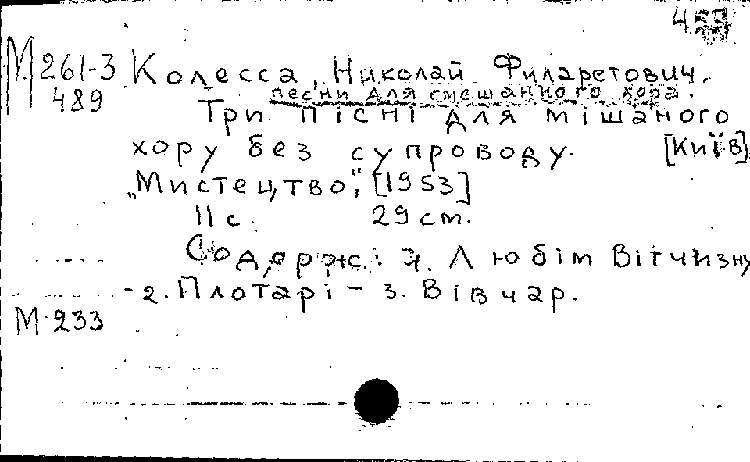 М 261-3
489
Колесса, Николай Филаретович.
песни для смешанного хора.
Три пісні для мішаного
хору без супроводу. [Київ]
„Мистецтво", [1953]
11 с. 29 см.
Содерж.: 1. Любім Вітчизну
- 2. Плотарі - 3. Вівчар.
М-233